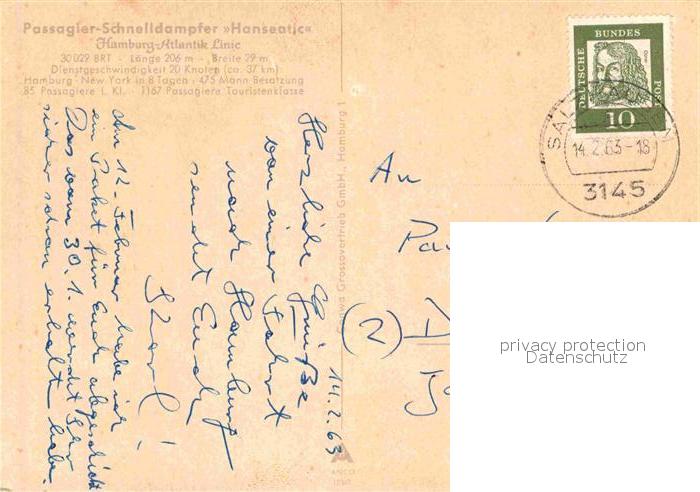 Passagier-Schnelldampfer »Hanseatic«
Hamburg-Atlantik Linie
30 029 BRT - Länge 206 m - Breite 29 m
Dienstgeschwindigkeit 20 Knoten (ca. 37 km)
Hamburg - New York in 8 Tagen - 475 Mann Besatzung
85 Passagiere I. Kl. - 1167 Passagiere Touristenklasse
14.2.63
Herzliche Grüße
von einer Fahrt
nach Hamburg
sendet Euch
Karl!
Am 12. Februar habe ich
ein Paket für Euch abgeschickt
Das vom 30.1. werdet Ihr
sicher schon erhalten haben.
Grossovertrieb GmbH., Hamburg 1
DEUTSCHE BUNDES POST
10
14.2.63-18
3145
An
(2)
privacy protection
Datenschutz